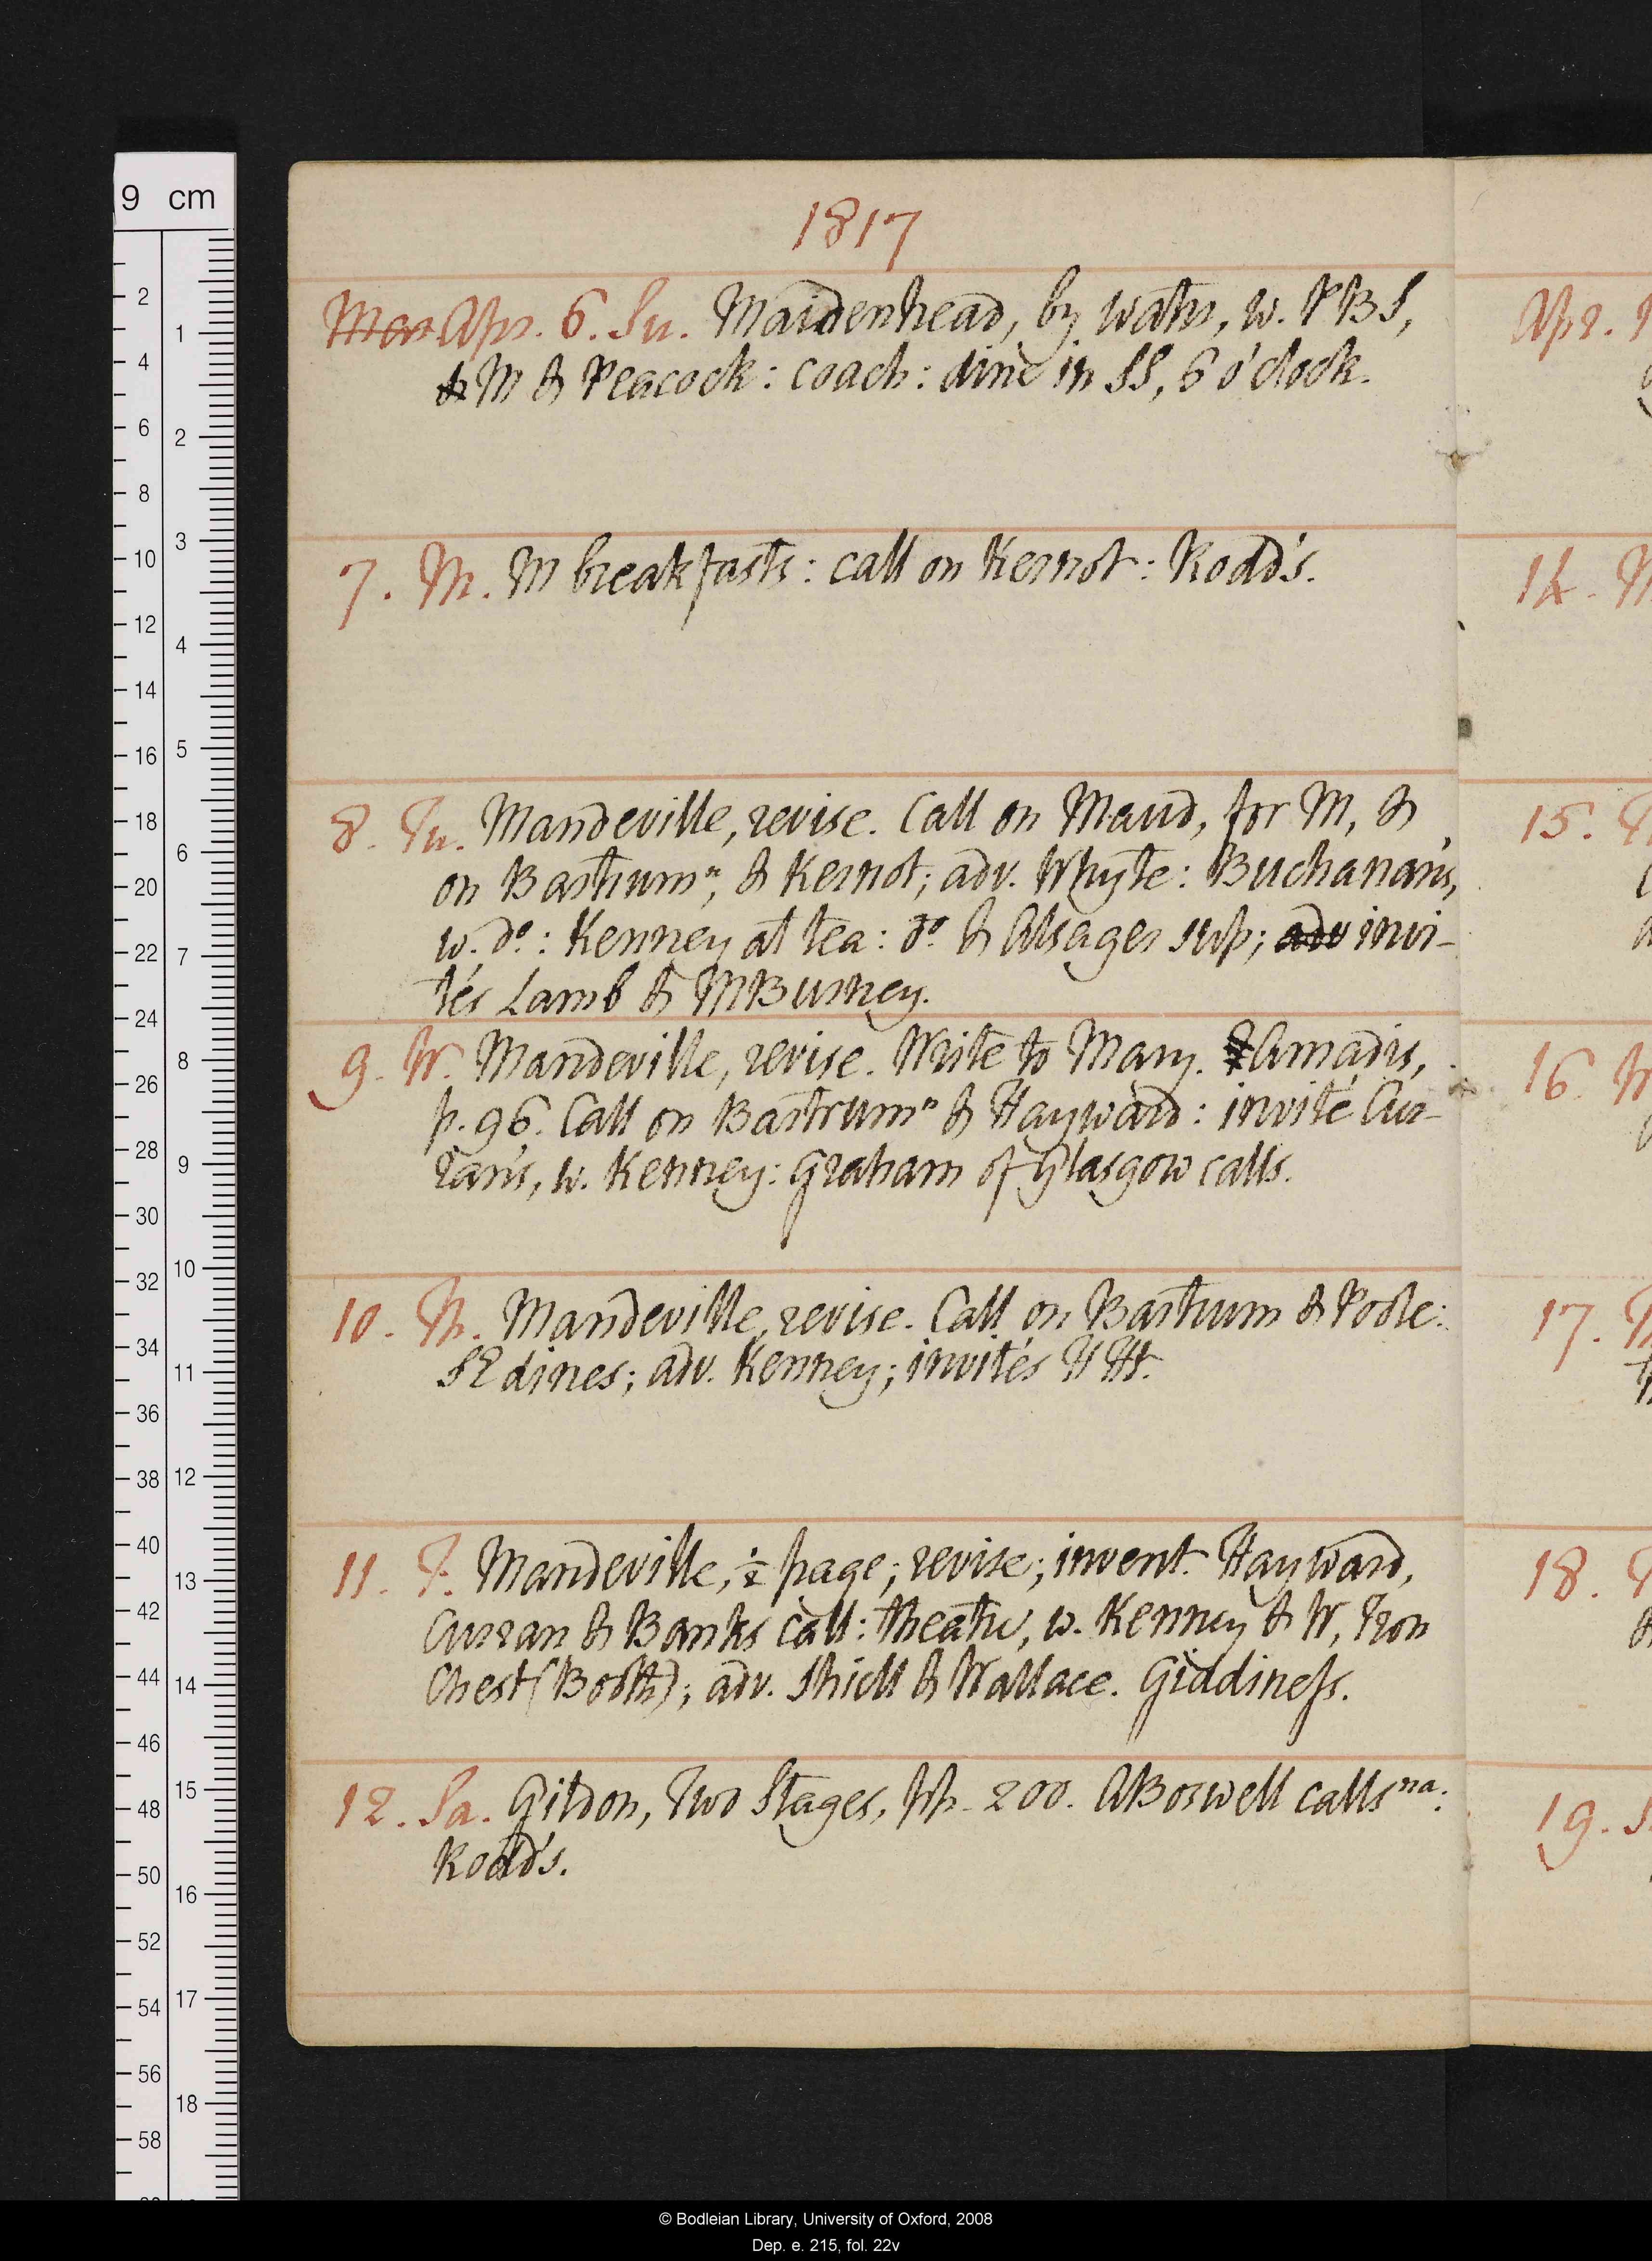 1817
Mar Apr. 6. Su. Maidenhead, by water, w. PBS,
& M & Peacock: coach: dine in SS, 6 o'clock.
7. M. M breakfasts: call on Kernot: Rodd's.
8. Tu. Mandeville, revise. Call on Maud, for M, &
on Bastrumⁿ, & Kernot; adv. Whyte: Buchanan's,
w. dº: Kenney at tea: dº & Alsager sup; adv invi-
tés Lamb & MBurney.
9. W. Mandeville, revise. Write to Mary. Amadis,
p. 96. Call on Bastrumⁿ & Hayward: invité Cur-
ran's, w. Kenney: Graham of Glasgow calls.
10. Th. Mandeville, revise. Call on Bastrum & Poole:
SE dines; adv. Kenney; invités HHt.
11. F. Mandeville, ½ page; revise; invent. Hayward,
Curran & Banks call: theatre, w. Kenney & W, Iron
Chest (Booth); adv. Shiell & Wallace. Giddineſs.
12. Sa. Gildon, Two Stages, pp. 200. ABoswell calls ⁿᵃ:
Rodd's.
Apr. 1
14. M
15. T
16. W
17. T
18. F
19. S
9 cm
2
4
6
8
10
12
14
16
18
20
22
24
26
28
30
32
34
36
38
40
42
44
46
48
50
52
54
56
58
1
2
3
4
5
6
7
8
9
10
11
12
13
14
15
16
17
18
© Bodleian Library, University of Oxford, 2008
Dep. e. 215, fol. 22v